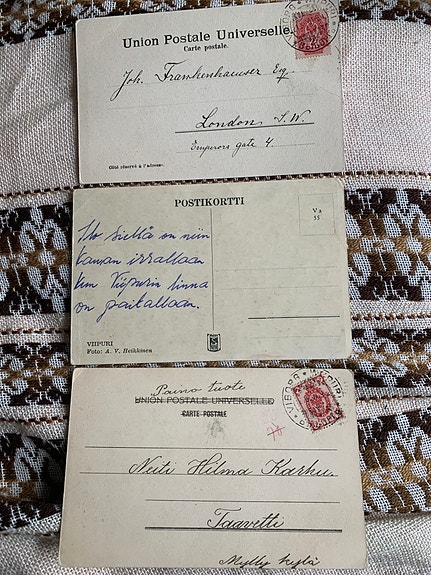 Union Postale Universelle.
Carte postale.
Joh. Frankenhaeuser Esq.
London S.W.
Emperors gate 4.
Côté réservé à l'adresse.
POSTIKORTTI
Va
55
siellä on niin
kauan irrallaan
kun Viipurin linna
on paikallaan.
VIIPURI
Foto: A. V. Heikkinen
Paino tuote
UNION POSTALE UNIVERSELLE
CARTE POSTALE
Neiti Hilma Karhu.
Taavetti
Mylly kylä